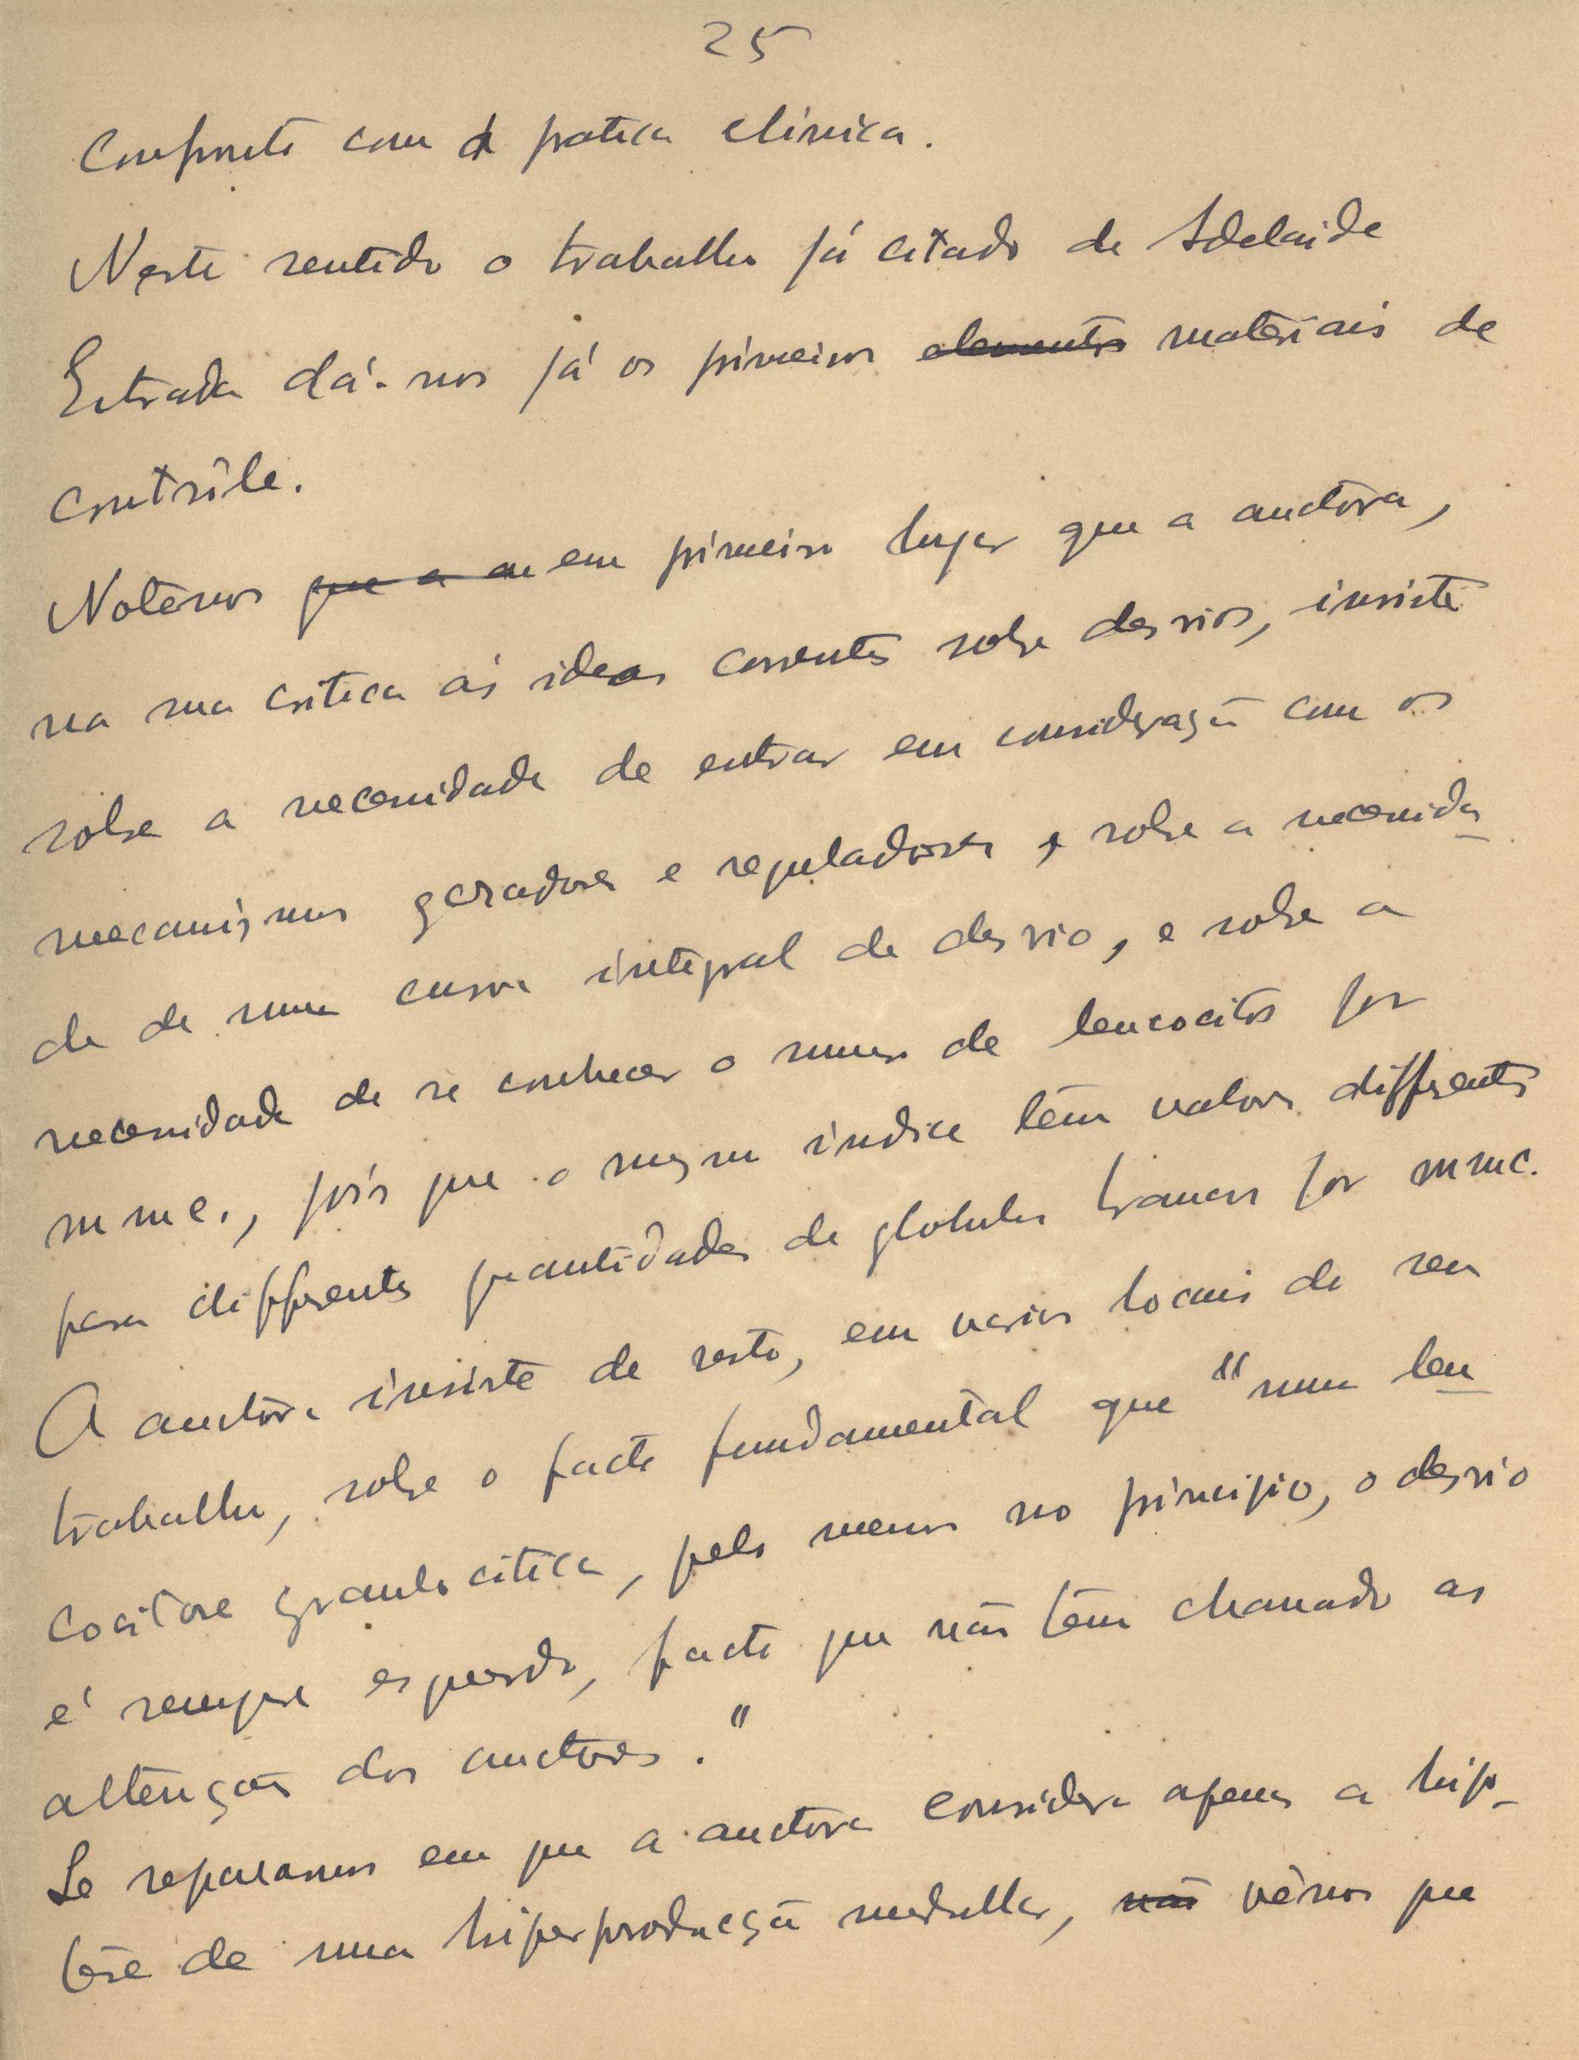 25
confronto com a pratica clinica.
Neste sentido o trabalho já citado de Adelaide
Estrada dá-nos já os primeiros elementos materiais de
contrôle.
Notêmos que a au em primeiro lugar que a auctora,
na sua critica ás ideas correntes sobre desvios, insiste
sobre a necessidade de entrar em consideração com os
mecanismos geradores e reguladores, sobre a necessida
de de uma curva integral de desvio, e sobre a
necessidade de se conhecer o numero de leucocitos por
mmc., pois que o mesmo indice têm valores differentes
para differentes quantidades de globulos brancos por mmc.
A auctora insiste de resto, em varios locais do seu
trabalho, sobre o facto fundamental que "numa leu
cocitose granulocitica, pelo menos no principio, o desvio
é sempre esquerdo, facto que não têm chamado as
attenções dos auctores."
Se repararmos em que a auctora considera apenas a hipo-
tese de uma hiperproducção medullar, não vêmos que